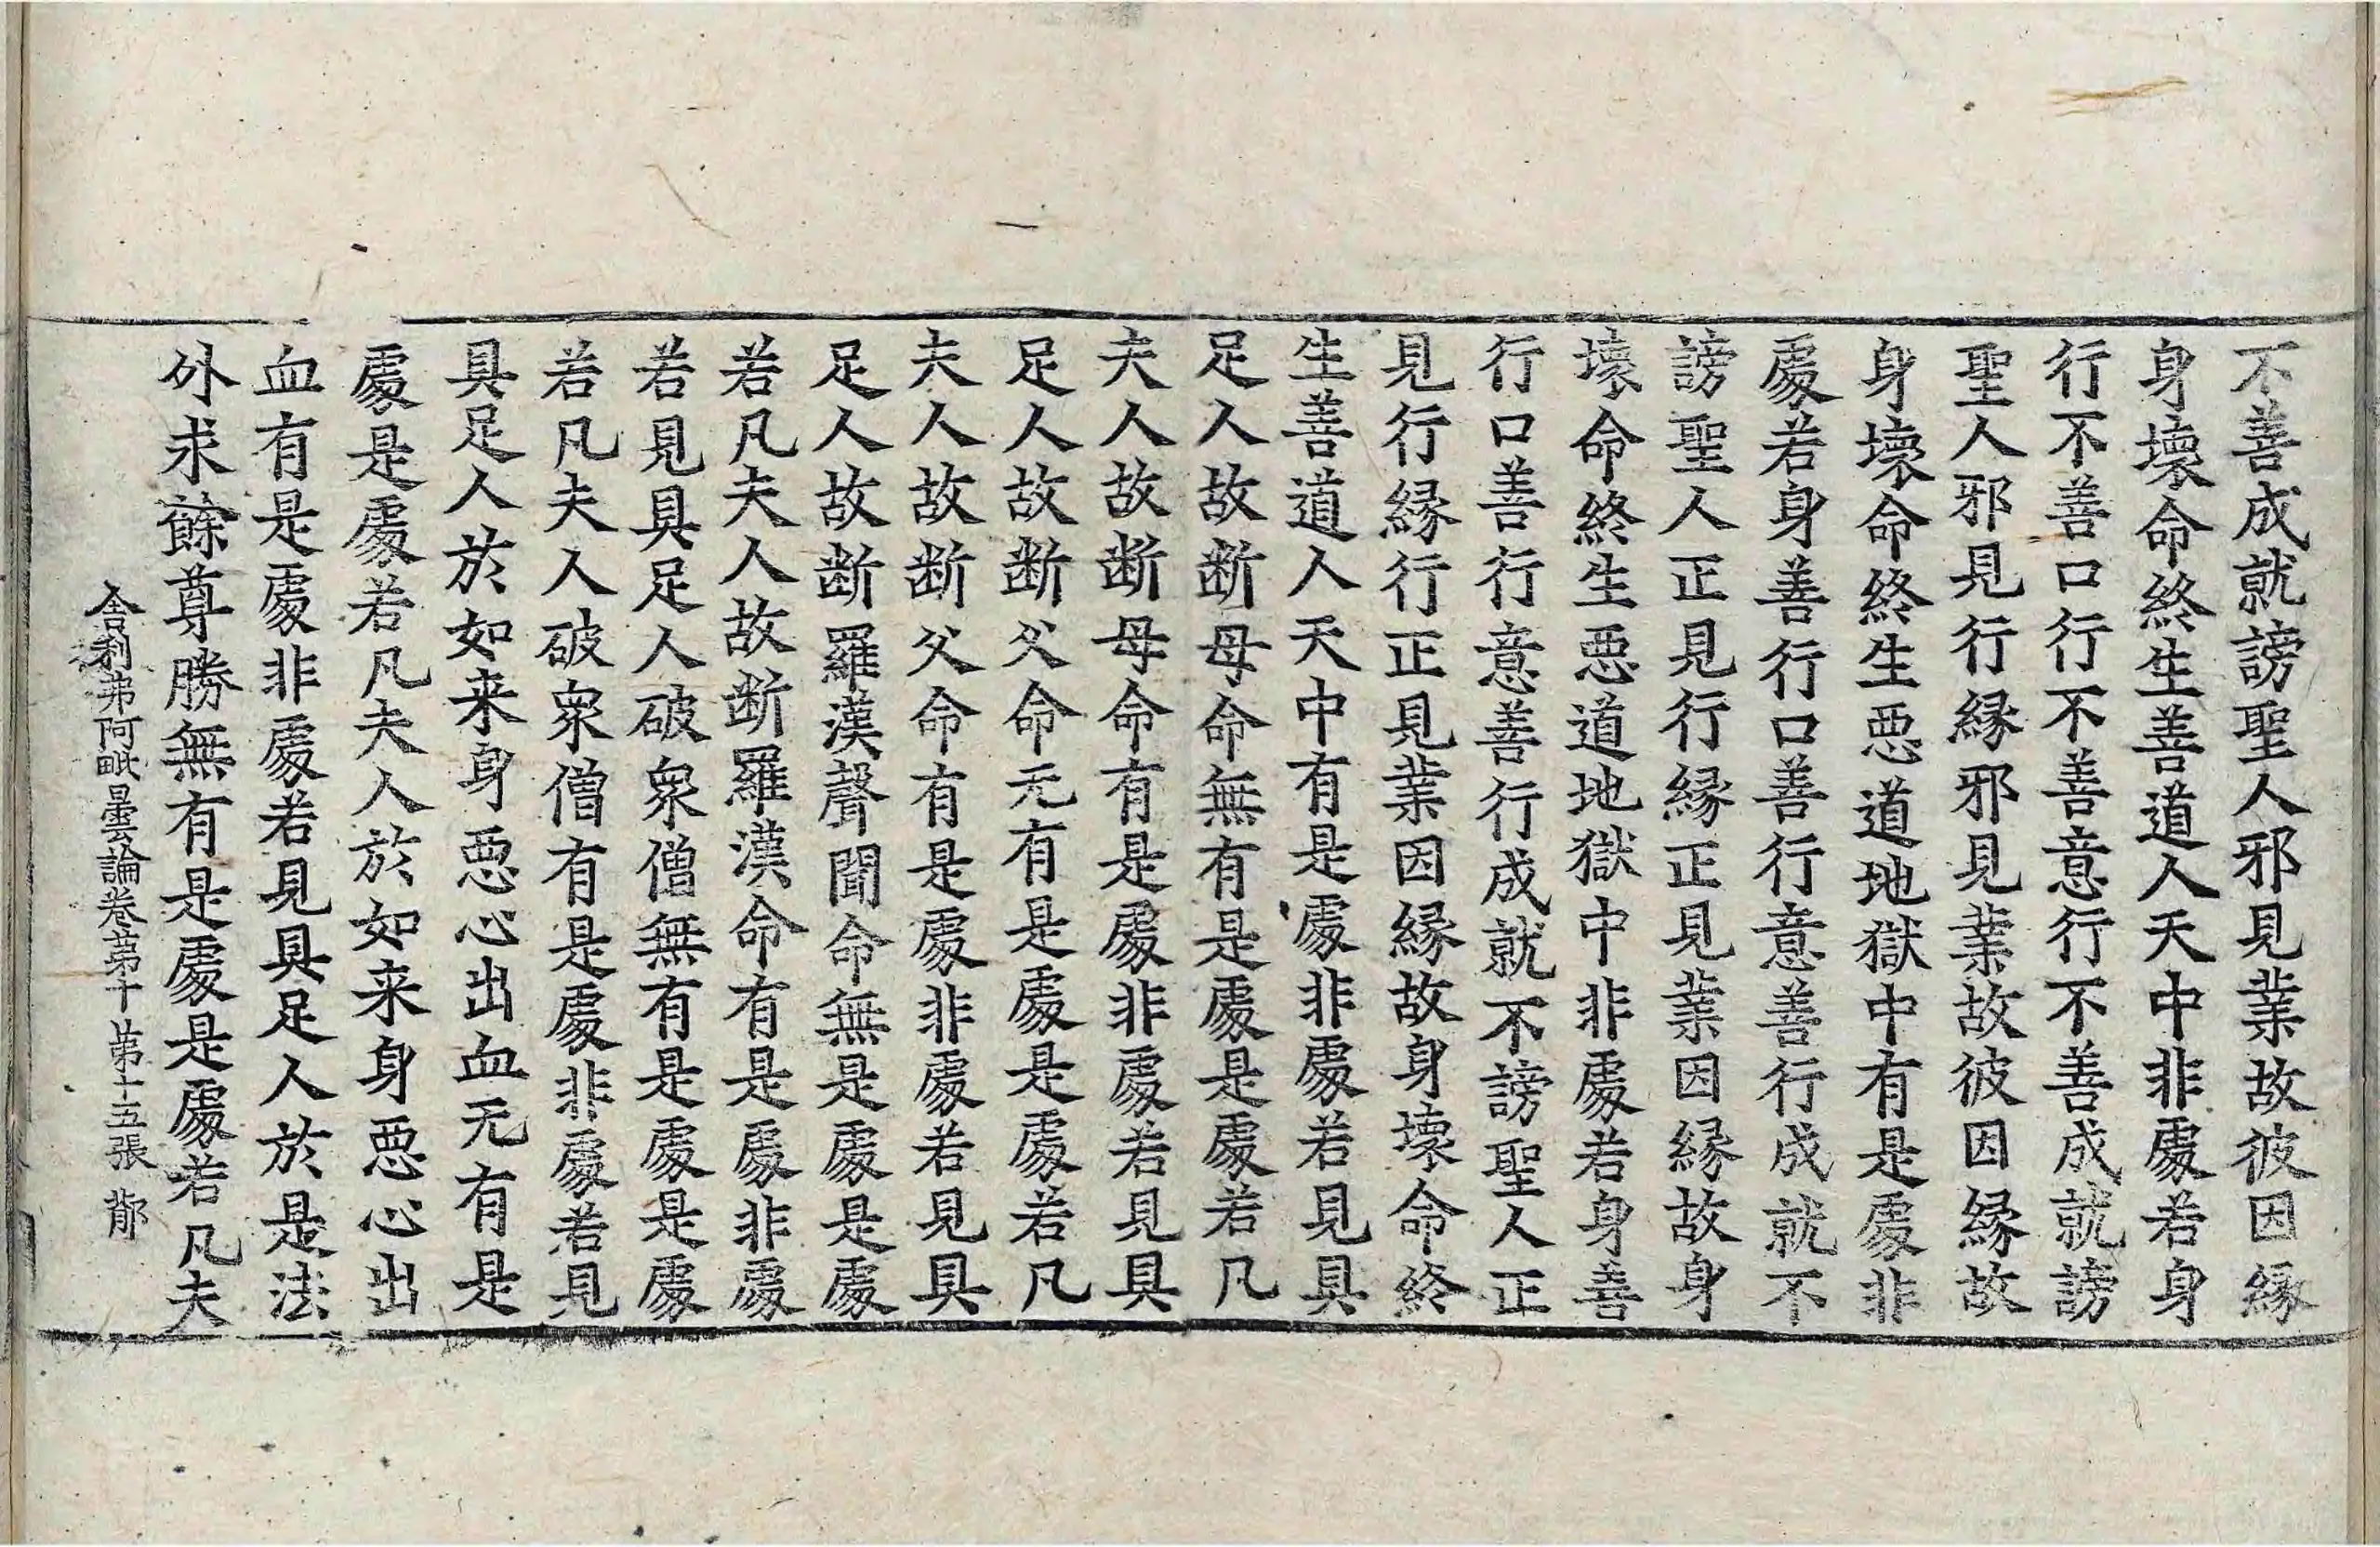 不善成就謗聖人邪見業故彼因縁
身壞命終生善道人天中非處若身
行不善口行不善意行不善成就謗
聖人邪見行縁邪見業故彼因縁故
身壞命終生惡道地獄中有是處非
處若身善行口善行意善行成就不
謗聖人正見行縁正見業因縁故身
壞命終生惡道地獄中非處若身善
行口善行意善行成就不謗聖人正
見行縁行正見業因縁故身壞命終
生善道人天中有是處非處若見具
足人故断母命無有是處是處若凡
夫人故断母命有是處非處若見具
足人故断父命无有是處是處若凡
夫人故断父命有是處非處若見具
足人故断羅漢聲聞命無是處是處
若凡夫人故断羅漢命有是處非處
若見具足人破衆僧無有是處是處
若凡夫人破衆僧有是處非處若見
具足人於如来身惡心出血无有是
處是處若凡夫人於如来身惡心出
血有是處非處若見具足人於是法
外求餘尊勝無有是處是處若凡夫
舎利弗阿毗曇論卷第十 第十五張